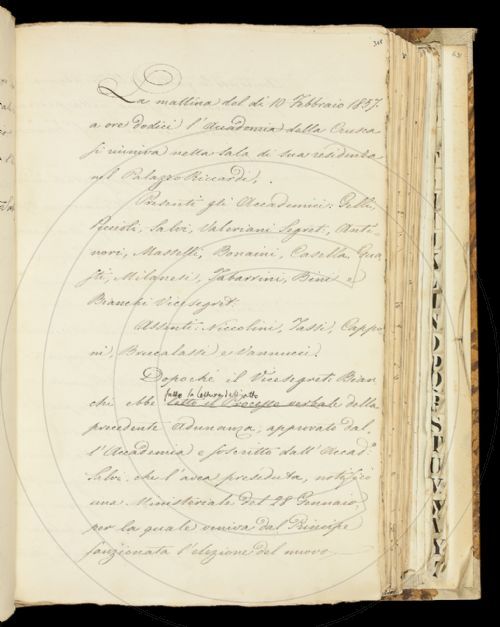 La mattina del dì 10 Febbraio 1857.
a ore dodici l'Accademia della Crusca
si riuniva nella sala di sua residenza
nel Palazzo Riccardi.
Presenti gli Accademici: Gelli,
Puccioti, Salvi, Valeriani Segret., Anti-
nori, Masselli, Bonaini, Casella, Gua-
sti, Milanesi, Tabarrini, Bini e
Bianchi Vicesegret.
Assenti: Niccolini, Tassi, Cappo-
ni, Brucalassi e Vannucci.
Dopochè il Vicesegret. Bian-
chi ebbe letto il Processo verbale della
precedente Adunanza, approvato dal-
l'Accademia e soscritto dall'Accad.
Salvi, che l'avea preseduta, notificò
una Ministeriale del 28 Gennaio,
per la quale veniva dal Principe
sanzionata l'elezione del nuovo